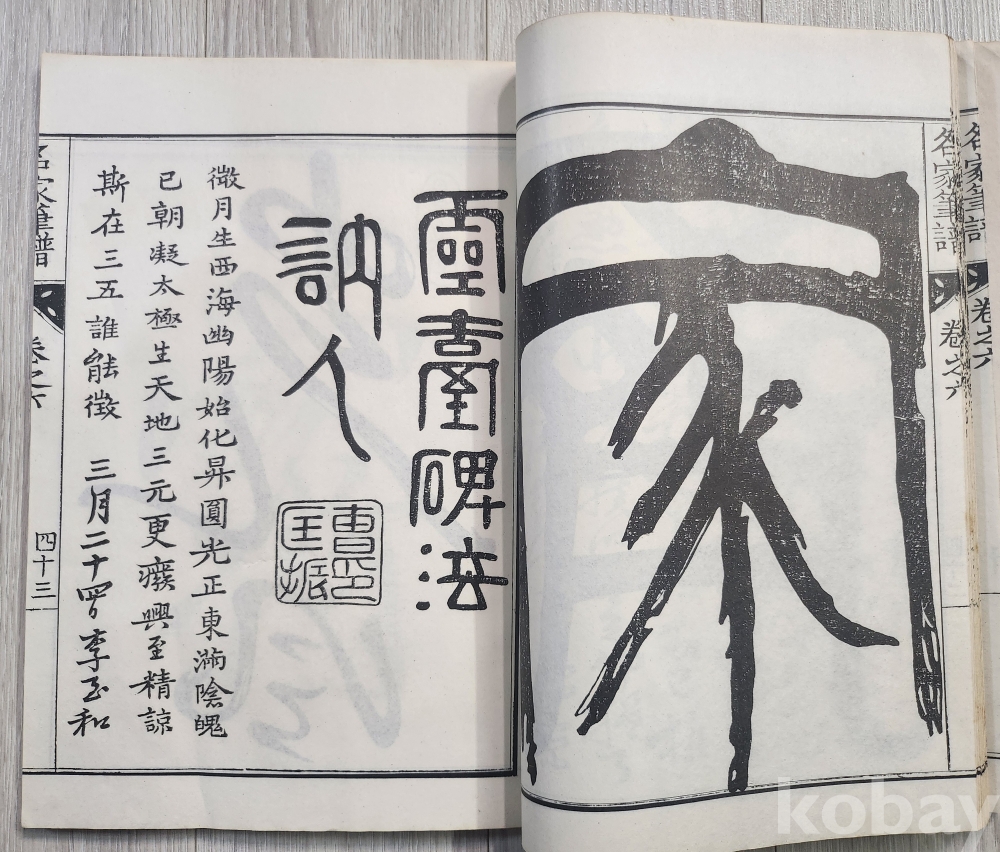 名家筆譜 卷之六
名家筆譜 卷之六
靈臺碑法
訥人
曹印匡振
微月生西海幽陽始化昇圓光正東滿陰魄
已朝凝太極生天地三元更癈興至精諒
斯在三五誰能徵 三月二十四日李和
名家筆譜 卷之六 四十三
kobay